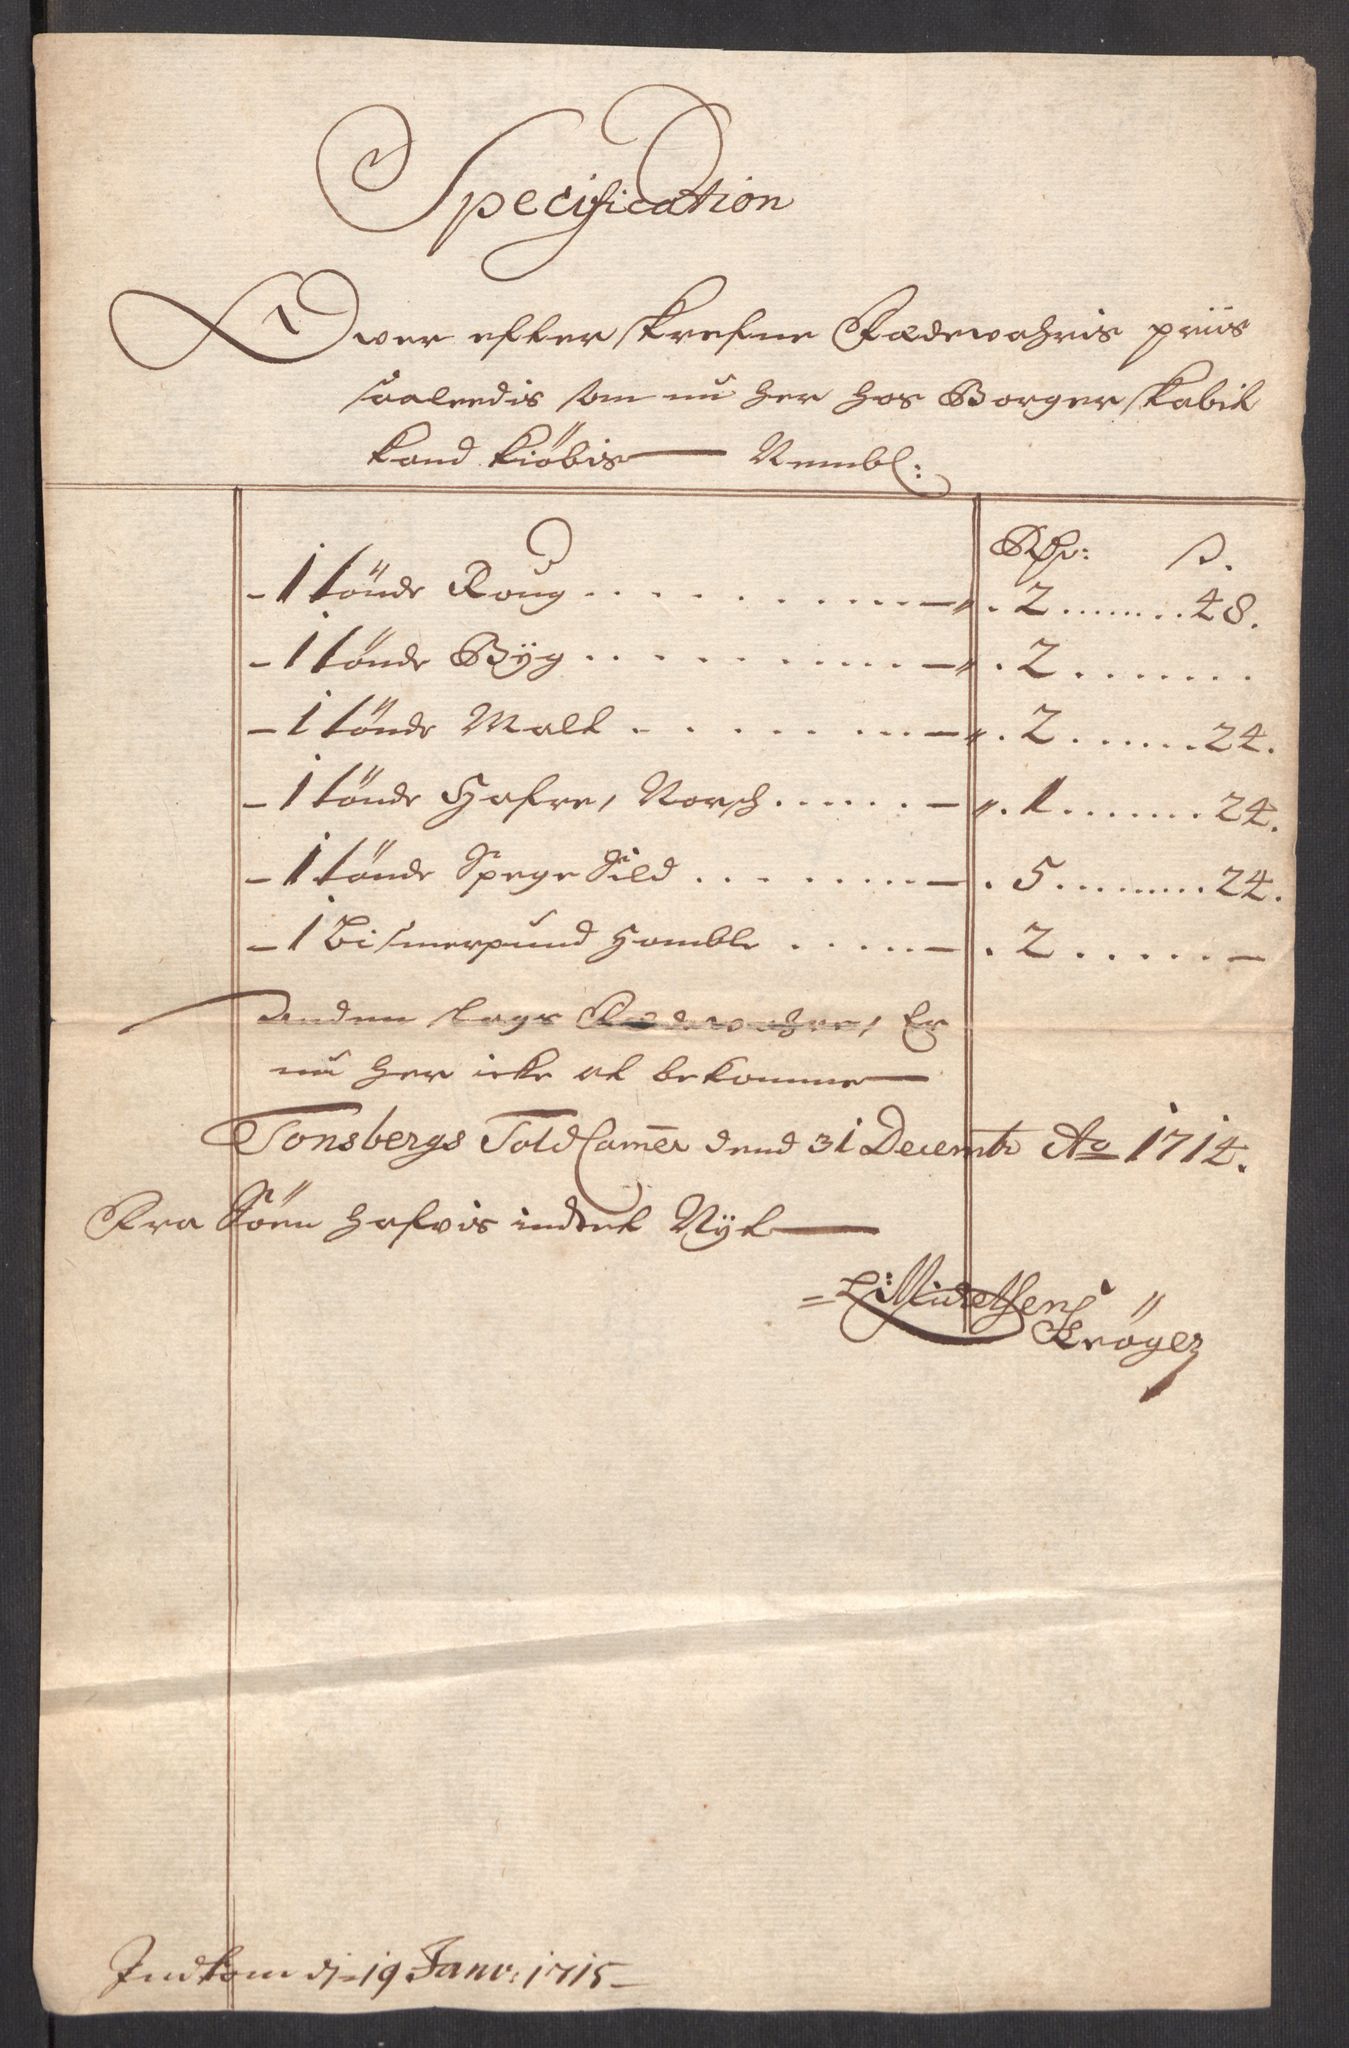 Specification
Over efter skrefne Fædewahris priis
saaleedis som nu her hos Borger skabit
kand kiöbis — Nembl:
Rdr: ß.
- 1 tönde Roug . . . . . . . . . — „ . 2 . . . . . . . 48.
- 1 tönde Byg . . . . . . . . . — „ . 2 . . . . . . .
- 1 tönde Malt . . . . . . . . . — „ . 2 . . . . . . . 24.
- 1 tönde Hafre, Norsch . . . . . . — „ . 1 . . . . . . . 24.
- 1 tönde Spege Sild . . . . . . . . — . 5 . . . . . . . 24.
- 1 Bismerpund Homble . . . . . — . 2 . . . . . . —
Anden slags Fædewahre, Er
nu her icke at bekomme —
Tonsbergs Told Camer dend 31 Decembr Ao 1714.
Fra Söen hafvis indtet Nÿt —
Kröger
Indkom d: 19 Janv: 1715 —